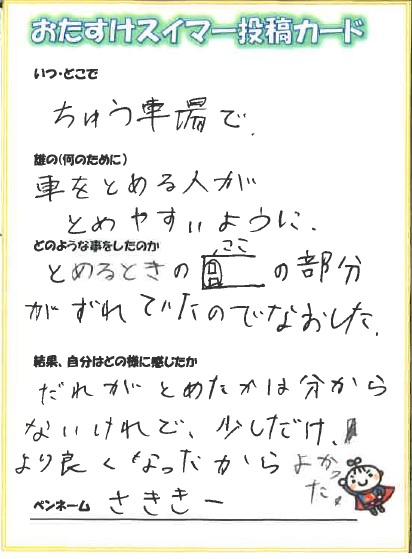 おたすけスイマー投稿カード
いつ・どこで
ちゅう車場で、
誰の(何のために)
車をとめる人が
とめやすいように、
どのような事をしたのか
ここ
とめるときの の部分
がずれていたのでなおした。
結果、自分はどの様に感じたか
だれがとめたかは分から
ないけれど、少しだけ、
より良くなったからよかっ
た!
ペンネーム さききー